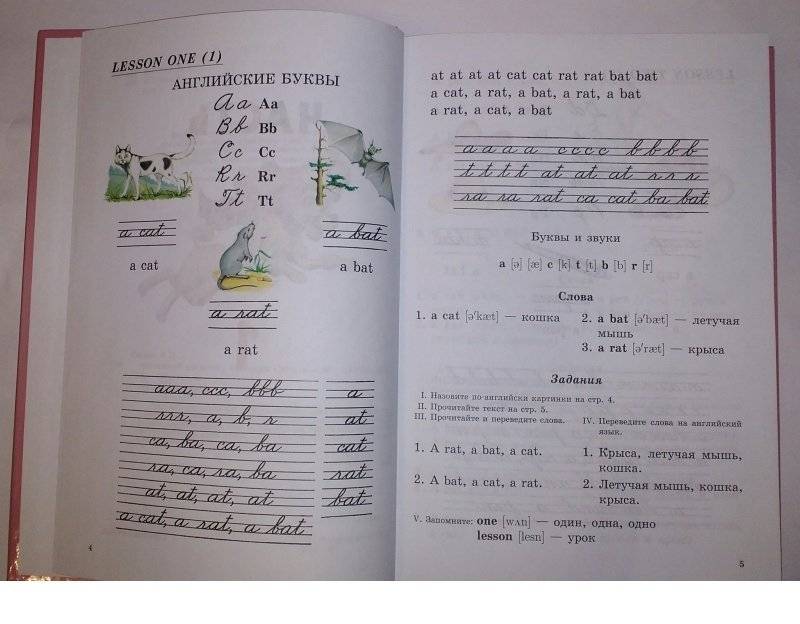 LESSON ONE (1)
АНГЛИЙСКИЕ БУКВЫ
Aa Aa
Bb Bb
Cc Cc
Rr Rr
Tt Tt
a cat
a cat
a bat
a bat
a rat
a rat
aaa, ccc, bbb
rrr, a, b, r
ca, ba, ca, ba
ra, ca, ra, ba
at, at, at, at
a cat, a rat, a bat
a
at
cat
rat
bat
4
at at at at cat cat rat rat bat bat
a cat, a rat, a bat, a rat, a bat
a rat, a cat, a bat
a a a a c c c c b b b b
t t t t at at at r r r
ra ra rat ca cat ba bat
Буквы и звуки
a [ə] [æ] c [k] t [t] b [b] r [r]
Слова
1. a cat [ə'kæt] — кошка
2. a bat [ə'bæt] — летучая
мышь
3. a rat [ə'ræt] — крыса
Задания
I. Назовите по-английски картинки на стр. 4.
II. Прочитайте текст на стр. 5.
III. Прочитайте и переведите слова.
1. A rat, a bat, a cat.
2. A bat, a cat, a rat.
IV. Переведите слова на английский
язык.
1. Крыса, летучая мышь,
кошка.
2. Летучая мышь, кошка,
крыса.
V. Запомните: one [wʌn] — один, одна, одно
lesson [lesn] — урок
5